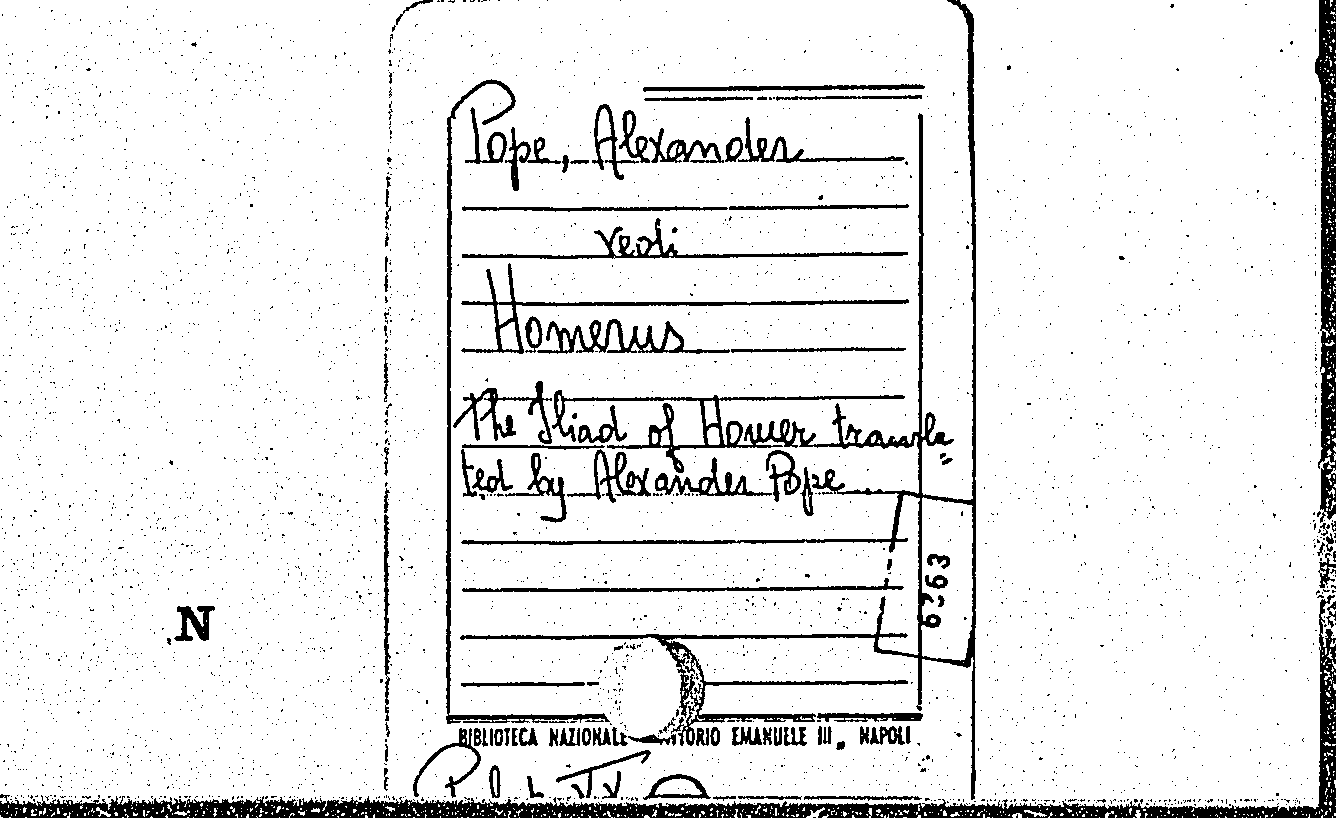 Pope, Alexander
vedi
Homerus
The Iliad of Homer transla„
ted by Alexander Pope...
6263
N
BIBLIOTECA NAZIONALE EMANUELE III„ NAPOLI